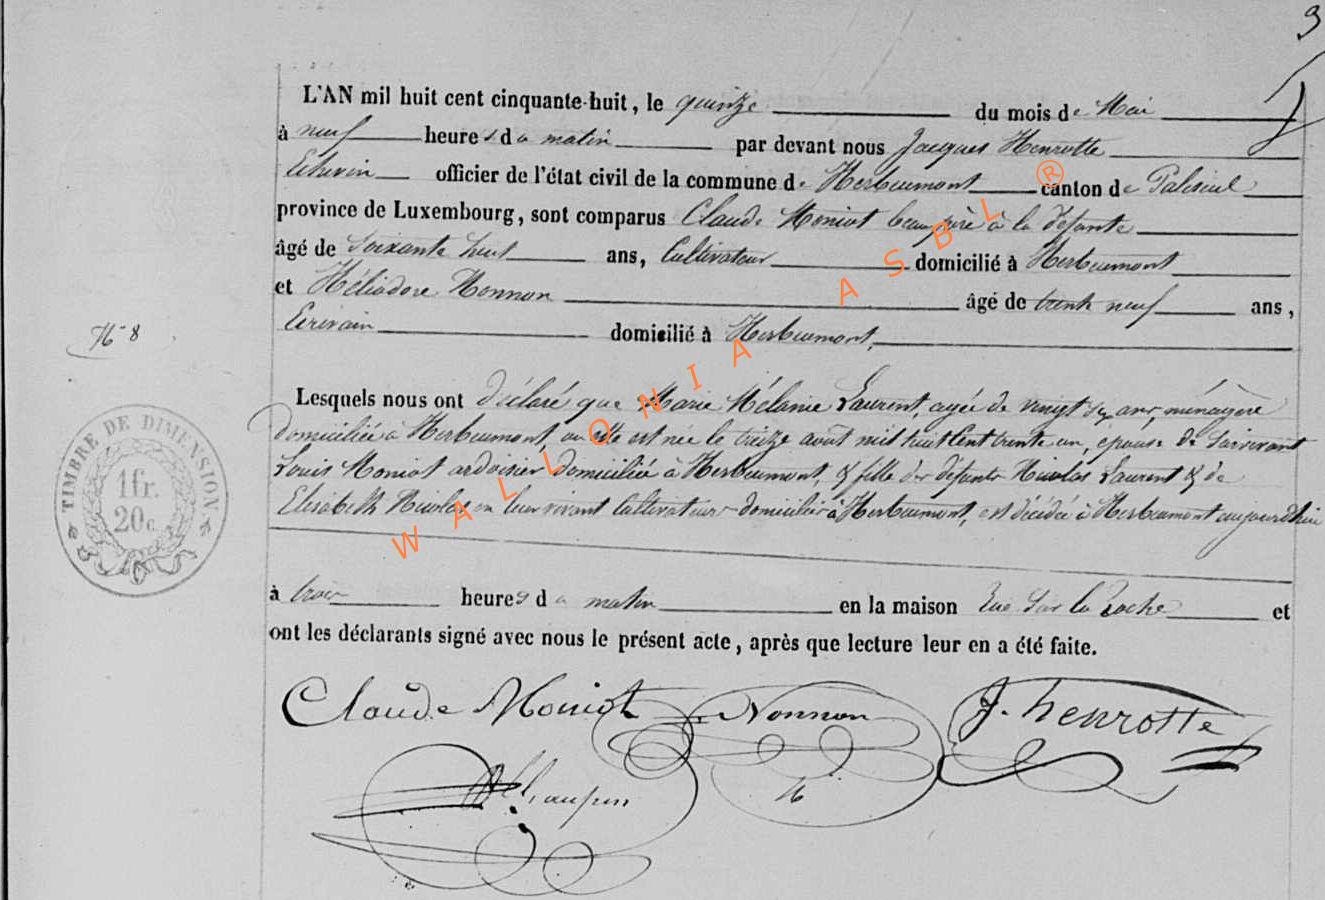 9
L'AN mil huit cent cinquante-huit, le quinze du mois de Mai
à neuf heures du matin par devant nous Jacques Henrotte
Echevin officier de l'état civil de la commune de Herbeumont canton de Paliseul
province de Luxembourg, sont comparus Claude Moniot beau père à la défunte
âgé de Soixante huit ans, Cultivateur domicilié à Herbeumont
et Héliodore Nonnon âgé de trente neuf ans,
Ecrivain domicilié à Herbeumont,
N° 8
Lesquels nous ont déclaré que Marie Mélanie Laurent, agée de vingt six ans, ménagère
domiciliée à Herbeumont, où elle est née le treize août mil huit cent trente un, épouse de Survivant
Louis Moniot ardoisier domiciliée à Herbeumont, & fille des défunts Nicolas Laurent & de
Elisabeth Nicolas en leur vivant Cultivateurs domiciliés à Herbeumont, est décédée à Herbeumont aujourd'hui
TIMBRE DE DIMENSION
1 fr.
20 c.
à trois heures du matin en la maison Rue Sur la Roche et
ont les déclarants signé avec nous le présent acte, après que lecture leur en a été faite.
Claude Moniot Nonnon J. henrotte
WALLONIA ASBL ®